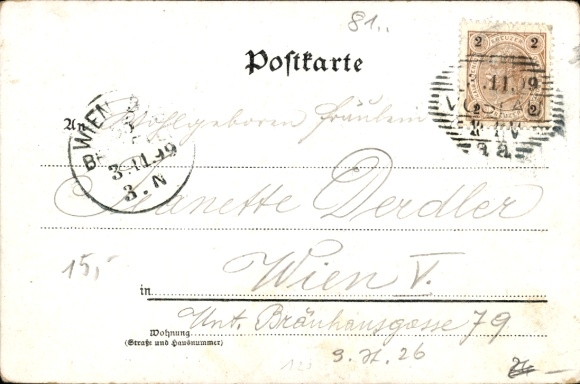 81..
Postkarte
2 KREUZER 2
.11.99
2 2
An Wohlgeboren Fräulein
WIEN
3.11.99
3.N
Jeanette Derdler
15,-
in Wien V.
Unt. Bräuhausgasse 79
Wohnung
(Straße und Hausnummer)
9. H. 26